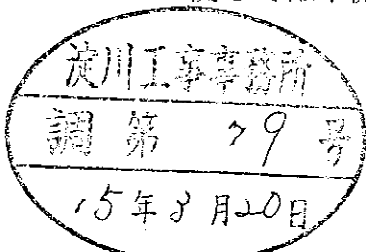 淀川工事事務所
調第79号
15年3月20日